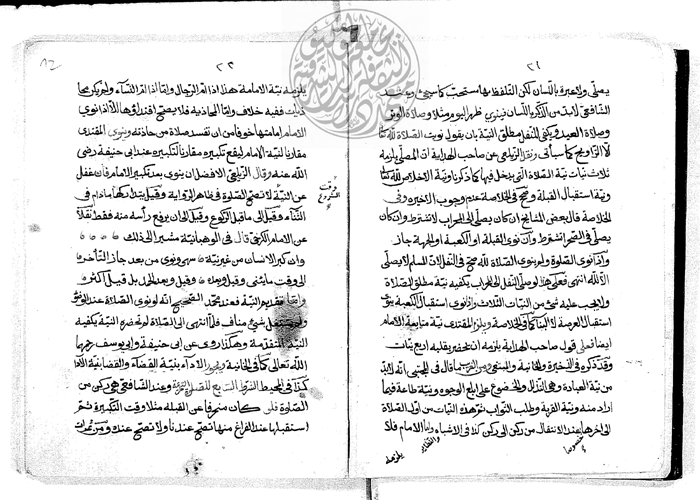 ٢١
يصلي ولا عبرة باللسان لكن التلفظ بها مستحب كما سيجئ وعند
الشافعي لابد من الذكر باللسان فينوي ظهر اليوم مثلا وصلاة الوتر
وصلاة العيد ويكفي للنفل مطلق النية بان يقول نويت الصلاة لله كما
لا التراويح كما سيأتي ونقل الزيلعي عن صاحب الهداية ان المصلي يلزمه
ثلاث نيات نية الصلاة التي يدخل فيها كما ذكرنا ونية الاخلاص لله تعالى
ونية استقبال القبلة وصحح في الخلاصة عدم وجوب الاخيرة وفي
الخلاصة قال بعض المشايخ ان كان يصلي الى المحراب لا تشترط وان كان
يصلي في الصحراء تشترط وان نوى القبلة او الكعبة او الجهة جاز
واذا نوى الصلوة ولم ينوي الصلاة لله صح في النفل لان المسلم لا يصلي
الا لله انتهى فعلى هذا لو صلى النفل الى المحراب يكفيه نية مطلق الصلاة
ولا يجب عليه شئ من النيات الثلاث نوى استقبال الكعبة
استقبال العرصة لا البناء كما في الخلاصة ويلزم المقتدي نية متابعة الامام
ايضا فعلى قول صاحب الهداية يلزمه ان تحضر بقلبه اربع نيات
وقد ذكره في الذخيرة والخانية قال في المجتبى انه لابد
من نية العبادة وهي التذلل والخضوع على ابلغ الوجوه ونية طاعة فيما
اراد منه ونية القربة وطلب الثواب ثم هذه النيات من اول الصلاة
الى اخرها عند الانتقال من ركن الى ركن كذا في الاشباه واما الامام فلا
يلزمه
٢٢
يلزمه نية الامامة هذا اذا ام الرجال واما اذا ام النساء ولم يكن محا
ذيات ففيه خلاف واما المحاذية فلا يصح اقتداؤها الا اذا نوى
الامام امامتها خوفا من ان تفسد صلاة من حاذته وينوي المقتدي
مقارنا لنية الامام ليقع تكبيره مقارنا لتكبيره عند ابي حنيفة رضي
الله عنه وقال الزيلعي الافضل ان ينوي بعد تكبير الامام فان غفل
عن النية لا تصح الصلوة في ظاهر الرواية وقيل يتداركها ما دام في
الثناء وقيل الى ما قبل الركوع وقيل الى ان يرفع رأسه منه فقط نقلا
عن الامام الكرخي قال في الوهبانية مشير الى ذلك
وان كبر الانسان من غير نية سهى ونوى من بعد جاز التأخر
الى وقت ما يثني وقيل وبعده وقيل وبعد الحمد بل قيل اكثر
واما تقديم النية فعند محمد الصحيح انه لو نوى الصلاة عند الوضوء
ولم يشتغل بشئ مناف فلما انتهى الى الصلاة لم تحضره النية يكفيه
النية المتقدمة وهكذا روي عن ابي حنيفة وابي يوسف رحمهما
الله تعالى كما في الخانية ويجوز الاداء بنية القضاء والقضاء بنية الاداء
كذا في المحيط وعند الشافعي هي ركن من
الصلوة فلو كان منحرفا عن القبلة مثلا وقت التكبيرة ثم
استقبلها عند الفراغ منها تصح عندنا ولا تصح عنده ومن ثمرات
وقت
الشروع